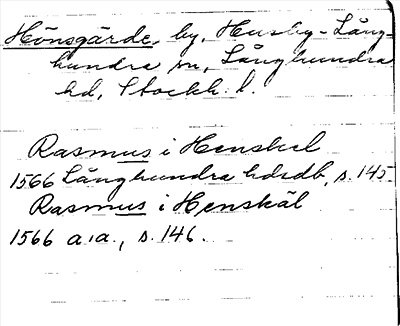 Hönsgärde, by, Husby-Lång-
hundra sn, Långhundra
hd, Stockh. l.
Rasmus i Henskel
1566 Långhundra hdsdb, s. 145
Rasmus i Henskäl
1566 a.a., s. 146.